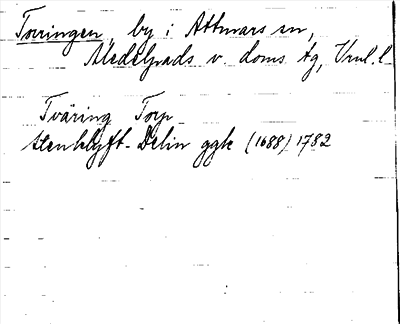 Torringen, by i Attmars sn,
Medelpads v. doms. tg, Vnl. l.
Tväring Torp
Stenklyft-Delin ggk (1688) 1782